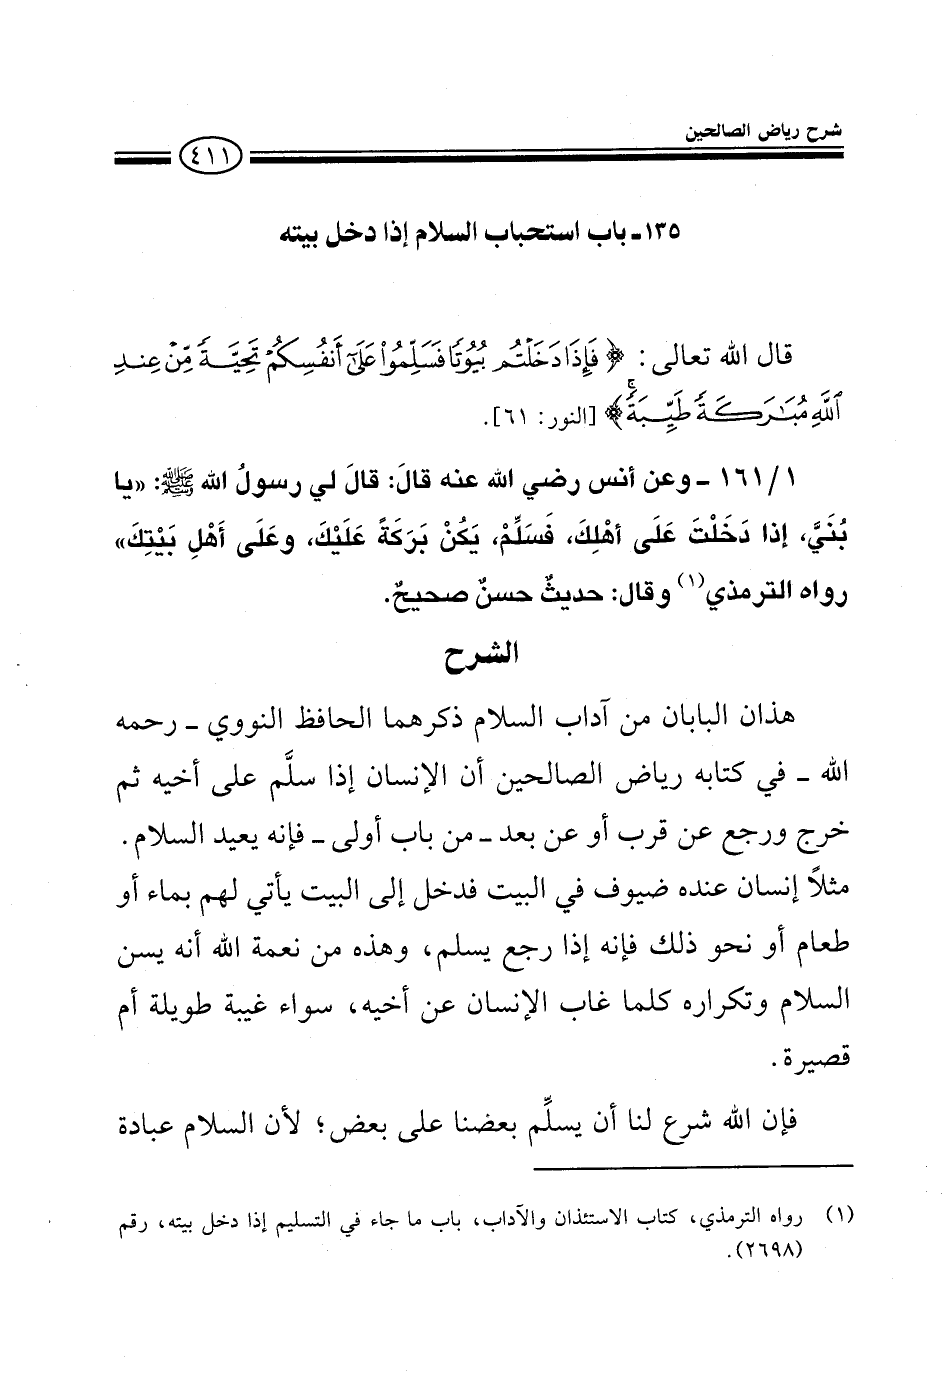 شرح رياض الصالحين
٤١١
١٣٥ـ باب استحباب السلام إذا دخل بيته
قال الله تعالى: ﴿فَإِذَا دَخَلْتُم بُيُوتًا فَسَلِّمُوا۟ عَلَىٰٓ أَنفُسِكُمْ تَحِيَّةً مِّنْ عِندِ
ٱللَّهِ مُبَٰرَكَةً طَيِّبَةً ۚ﴾ [النور: ٦١].
١٦١/١ ـ وعن أنس رضي الله عنه قالَ: قالَ لي رسولُ الله ﷺ: «يا
بُنَيَّ، إذا دَخَلْتَ عَلَى أهْلِكَ، فَسَلِّمْ، يَكُنْ بَرَكَةً عَلَيْكَ، وعَلَى أَهْلِ بَيْتِكَ»
رواه الترمذي(١) وقال: حديثٌ حسنٌ صحيحٌ.
الشرح
هذان البابان من آداب السلام ذكرهما الحافظ النووي ـ رحمه
الله ـ في كتابه رياض الصالحين أن الإنسان إذا سلَّم على أخيه ثم
خرج ورجع عن قرب أو عن بعد ـ من باب أولى ـ فإنه يعيد السلام.
مثلاً إنسان عنده ضيوف في البيت فدخل إلى البيت يأتي لهم بماء أو
طعام أو نحو ذلك فإنه إذا رجع يسلم، وهذه من نعمة الله أنه يسن
السلام وتكراره كلما غاب الإنسان عن أخيه، سواء غيبة طويلة أم
قصيرة.
فإن الله شرع لنا أن يسلِّم بعضنا على بعض؛ لأن السلام عبادة
(١) رواه الترمذي، كتاب الاستئذان والآداب، باب ما جاء في التسليم إذا دخل بيته، رقم
(٢٦٩٨).